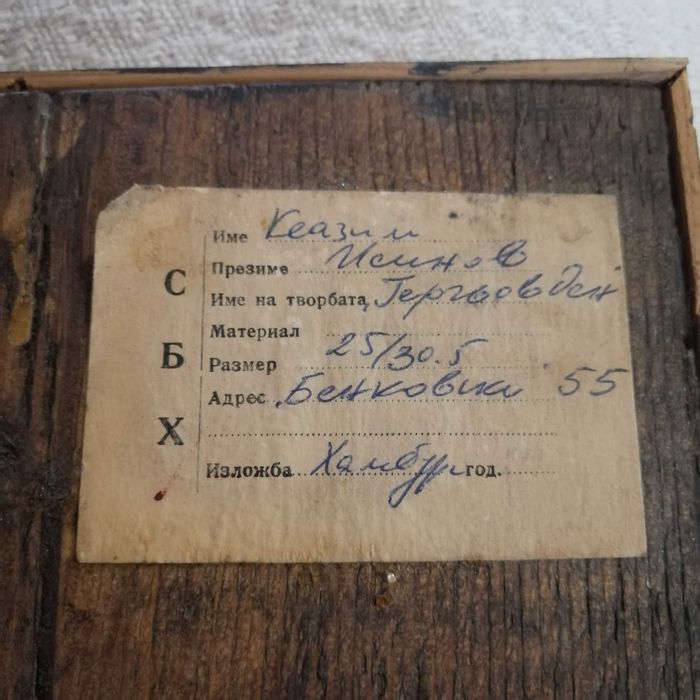 С
Б
Х
Име Кеазим
Презиме Исинов
Име на творбата „Гергьовден
Материал
Размер 25/30.5
Адрес „Бенковски" 55
Изложба Хамбург год.